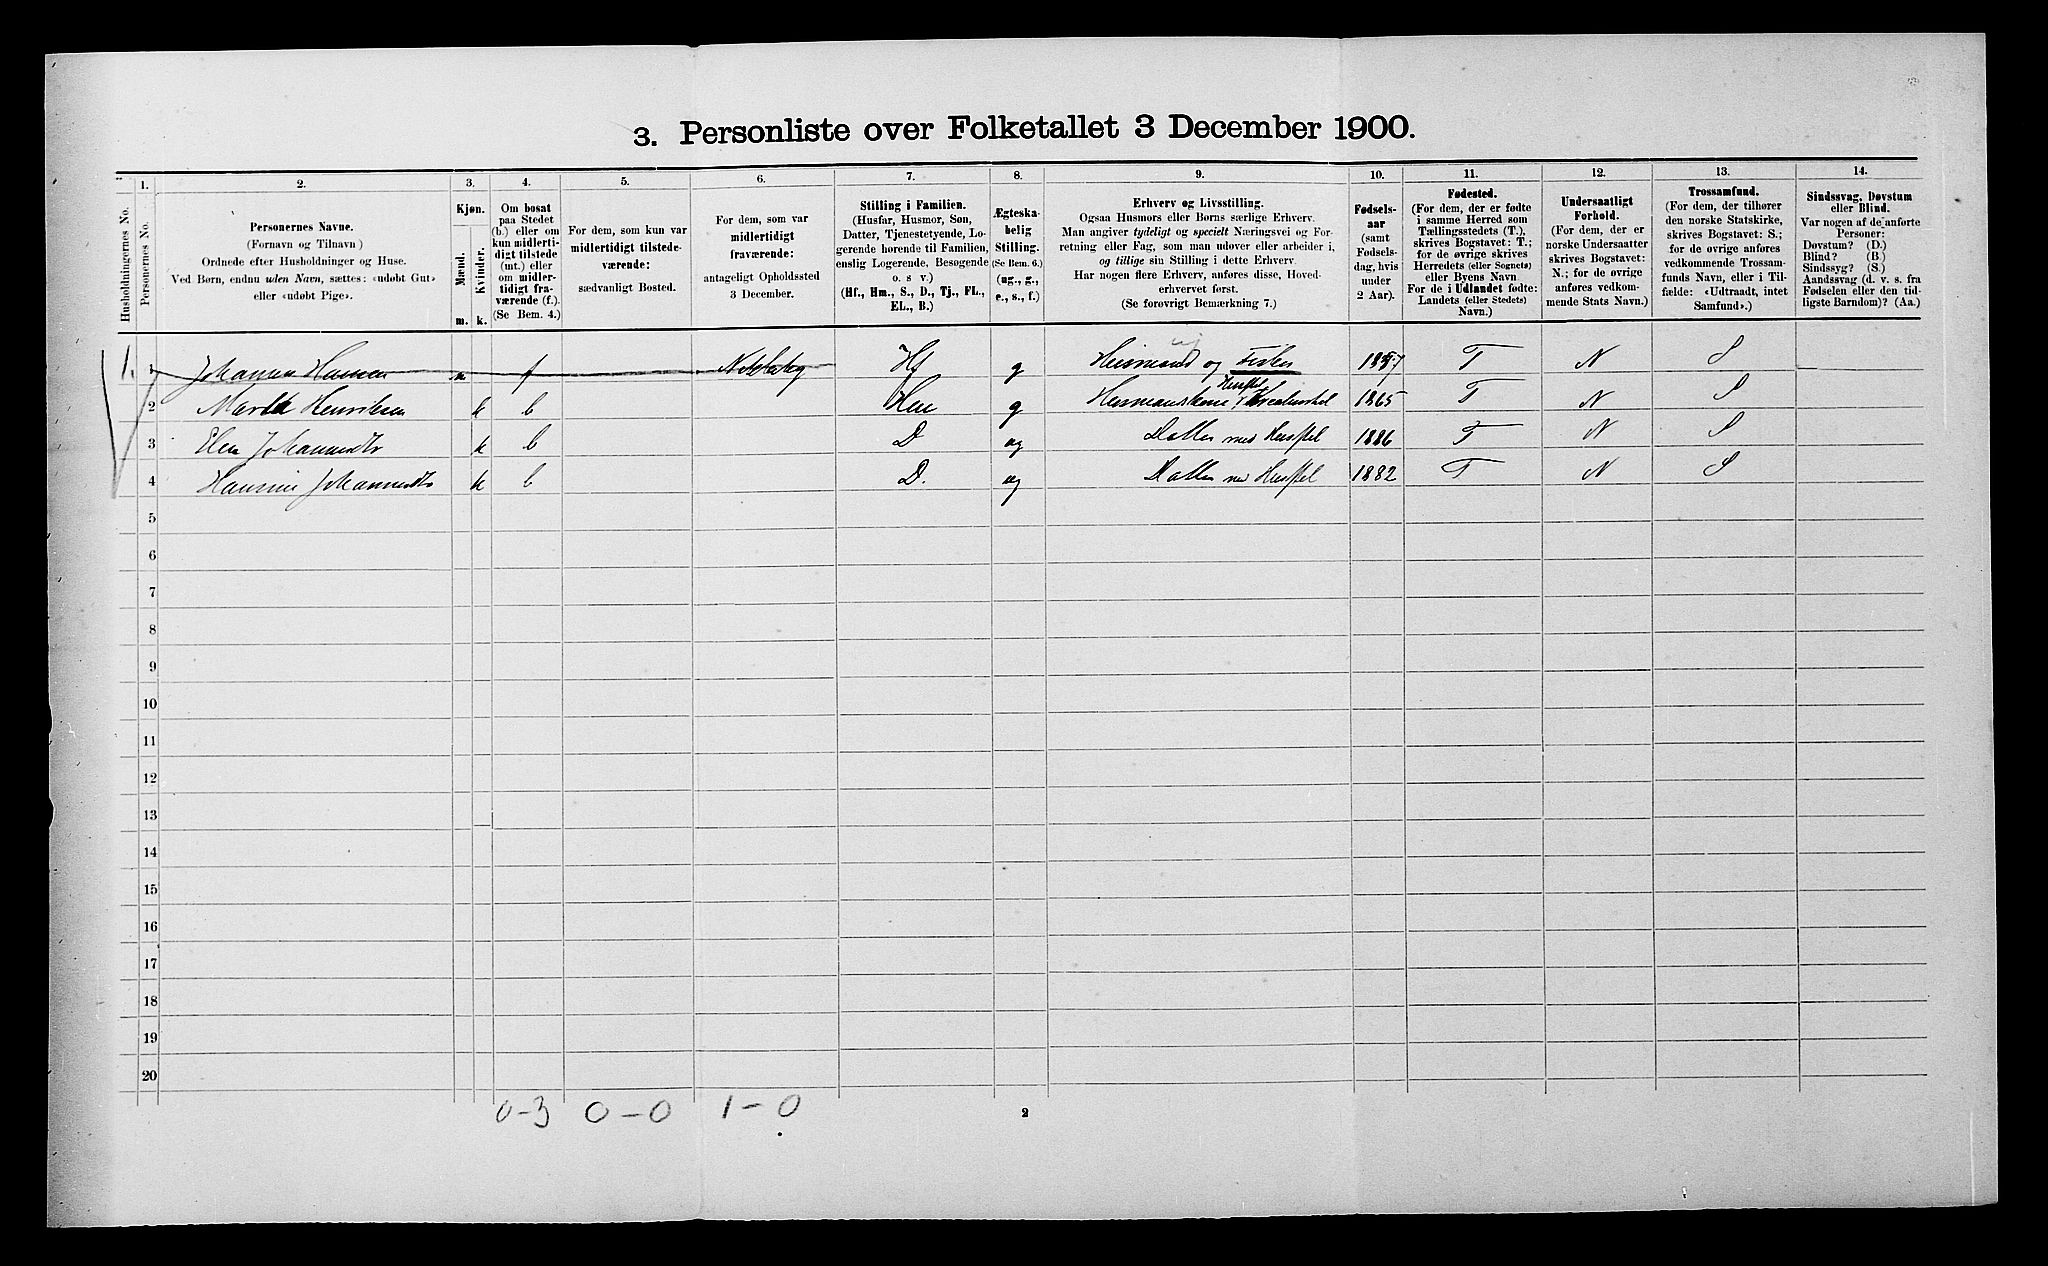 3. Personliste over Folketallet 3 December 1900.
Husholdningernes No.
1.
Personernes No.
2.
Personernes Navne.
(Fornavn og Tilnavn)
Ordnede efter Husholdninger og Huse.
Ved Børn, endnu uden Navn, sættes: «udøbt Gut»
eller «udøbt Pige».
3.
Kjøn.
Mænd.
Kvinder.
m. k.
4.
Om bosat
paa Stedet
(b.) eller om
kun midlerti-
digt tilstede
(mt.) eller
om midler-
tidigt fra-
værende (f.).
(Se Bem. 4.)
5.
For dem, som kun var
midlertidigt tilstede-
værende:
sædvanligt Bosted.
6.
For dem, som var
midlertidigt
fraværende:
antageligt Opholdssted
3 December.
7.
Stilling i Familien.
(Husfar, Husmor, Søn,
Datter, Tjenestetyende, Lo-
gerende hørende til Familien,
enslig Logerende, Besøgende
o. s v.)
(Hf., Hm., S., D., Tj., FL.,
EL., B.)
8.
Ægteska-
belig
Stilling.
(Se Bem. 6.)
(ug., g.,
e., s., f.)
9.
Erhverv og Livsstilling.
Ogsaa Husmors eller Børns særlige Erhverv.
Man angiver tydeligt og specielt Næringsvei og For-
retning eller Fag, som man udøver eller arbeider i,
og tillige sin Stilling i dette Erhverv.
Har nogen flere Erhverv, anføres disse, Hoved-
erhvervet først.
(Se forøvrigt Bemærkning 7.)
10.
Fødsels-
aar
(samt
Fødsels-
dag, hvis
under
2 Aar).
11.
Fødested.
(For dem, der er fødte
i samme Herred som
Tællingsstedets (T.),
skrives Bogstavet: T.;
for de øvrige skrives
Herredets (eller Sognets)
eller Byens Navn.
For de i Udlandet fødte:
Landets (eller Stedets)
Navn.)
12.
Undersaatligt
Forhold.
(For dem, der er
norske Undersaatter
skrives Bogstavet:
N.; for de øvrige
anføres vedkom-
mende Stats Navn.)
13.
Trossamfund.
(For dem, der tilhører
den norske Statskirke,
skrives Bogstavet: S.;
for de øvrige anføres
vedkommende Trossam-
funds Navn, eller i Til-
fælde: «Udtraadt, intet
Samfund».)
14.
Sindssvag, Døvstum
eller Blind.
Var nogen af de anførte
Personer:
Døvstum? (D.)
Blind? (B.)
Sindssyg? (S.)
Aandssvag (d. v. s. fra
Fødselen eller den tid-
ligste Barndom)? (Aa.)
1. 1 Johannes Hansen m f Hf g og Fisker 1857 T N S
2 Henriksen k b Hm g 1865 T N S
3 Elen Johannesdtr k b D ug Datter med Husstel 1886 T N S
4 Hansine Johannesdtr k b D. ug Datter med Husstel 1882 T N S
5
6
7
8
9
10
11
12
13
14
15
16
17
18
19
20
0-3 0-0 1-0 2